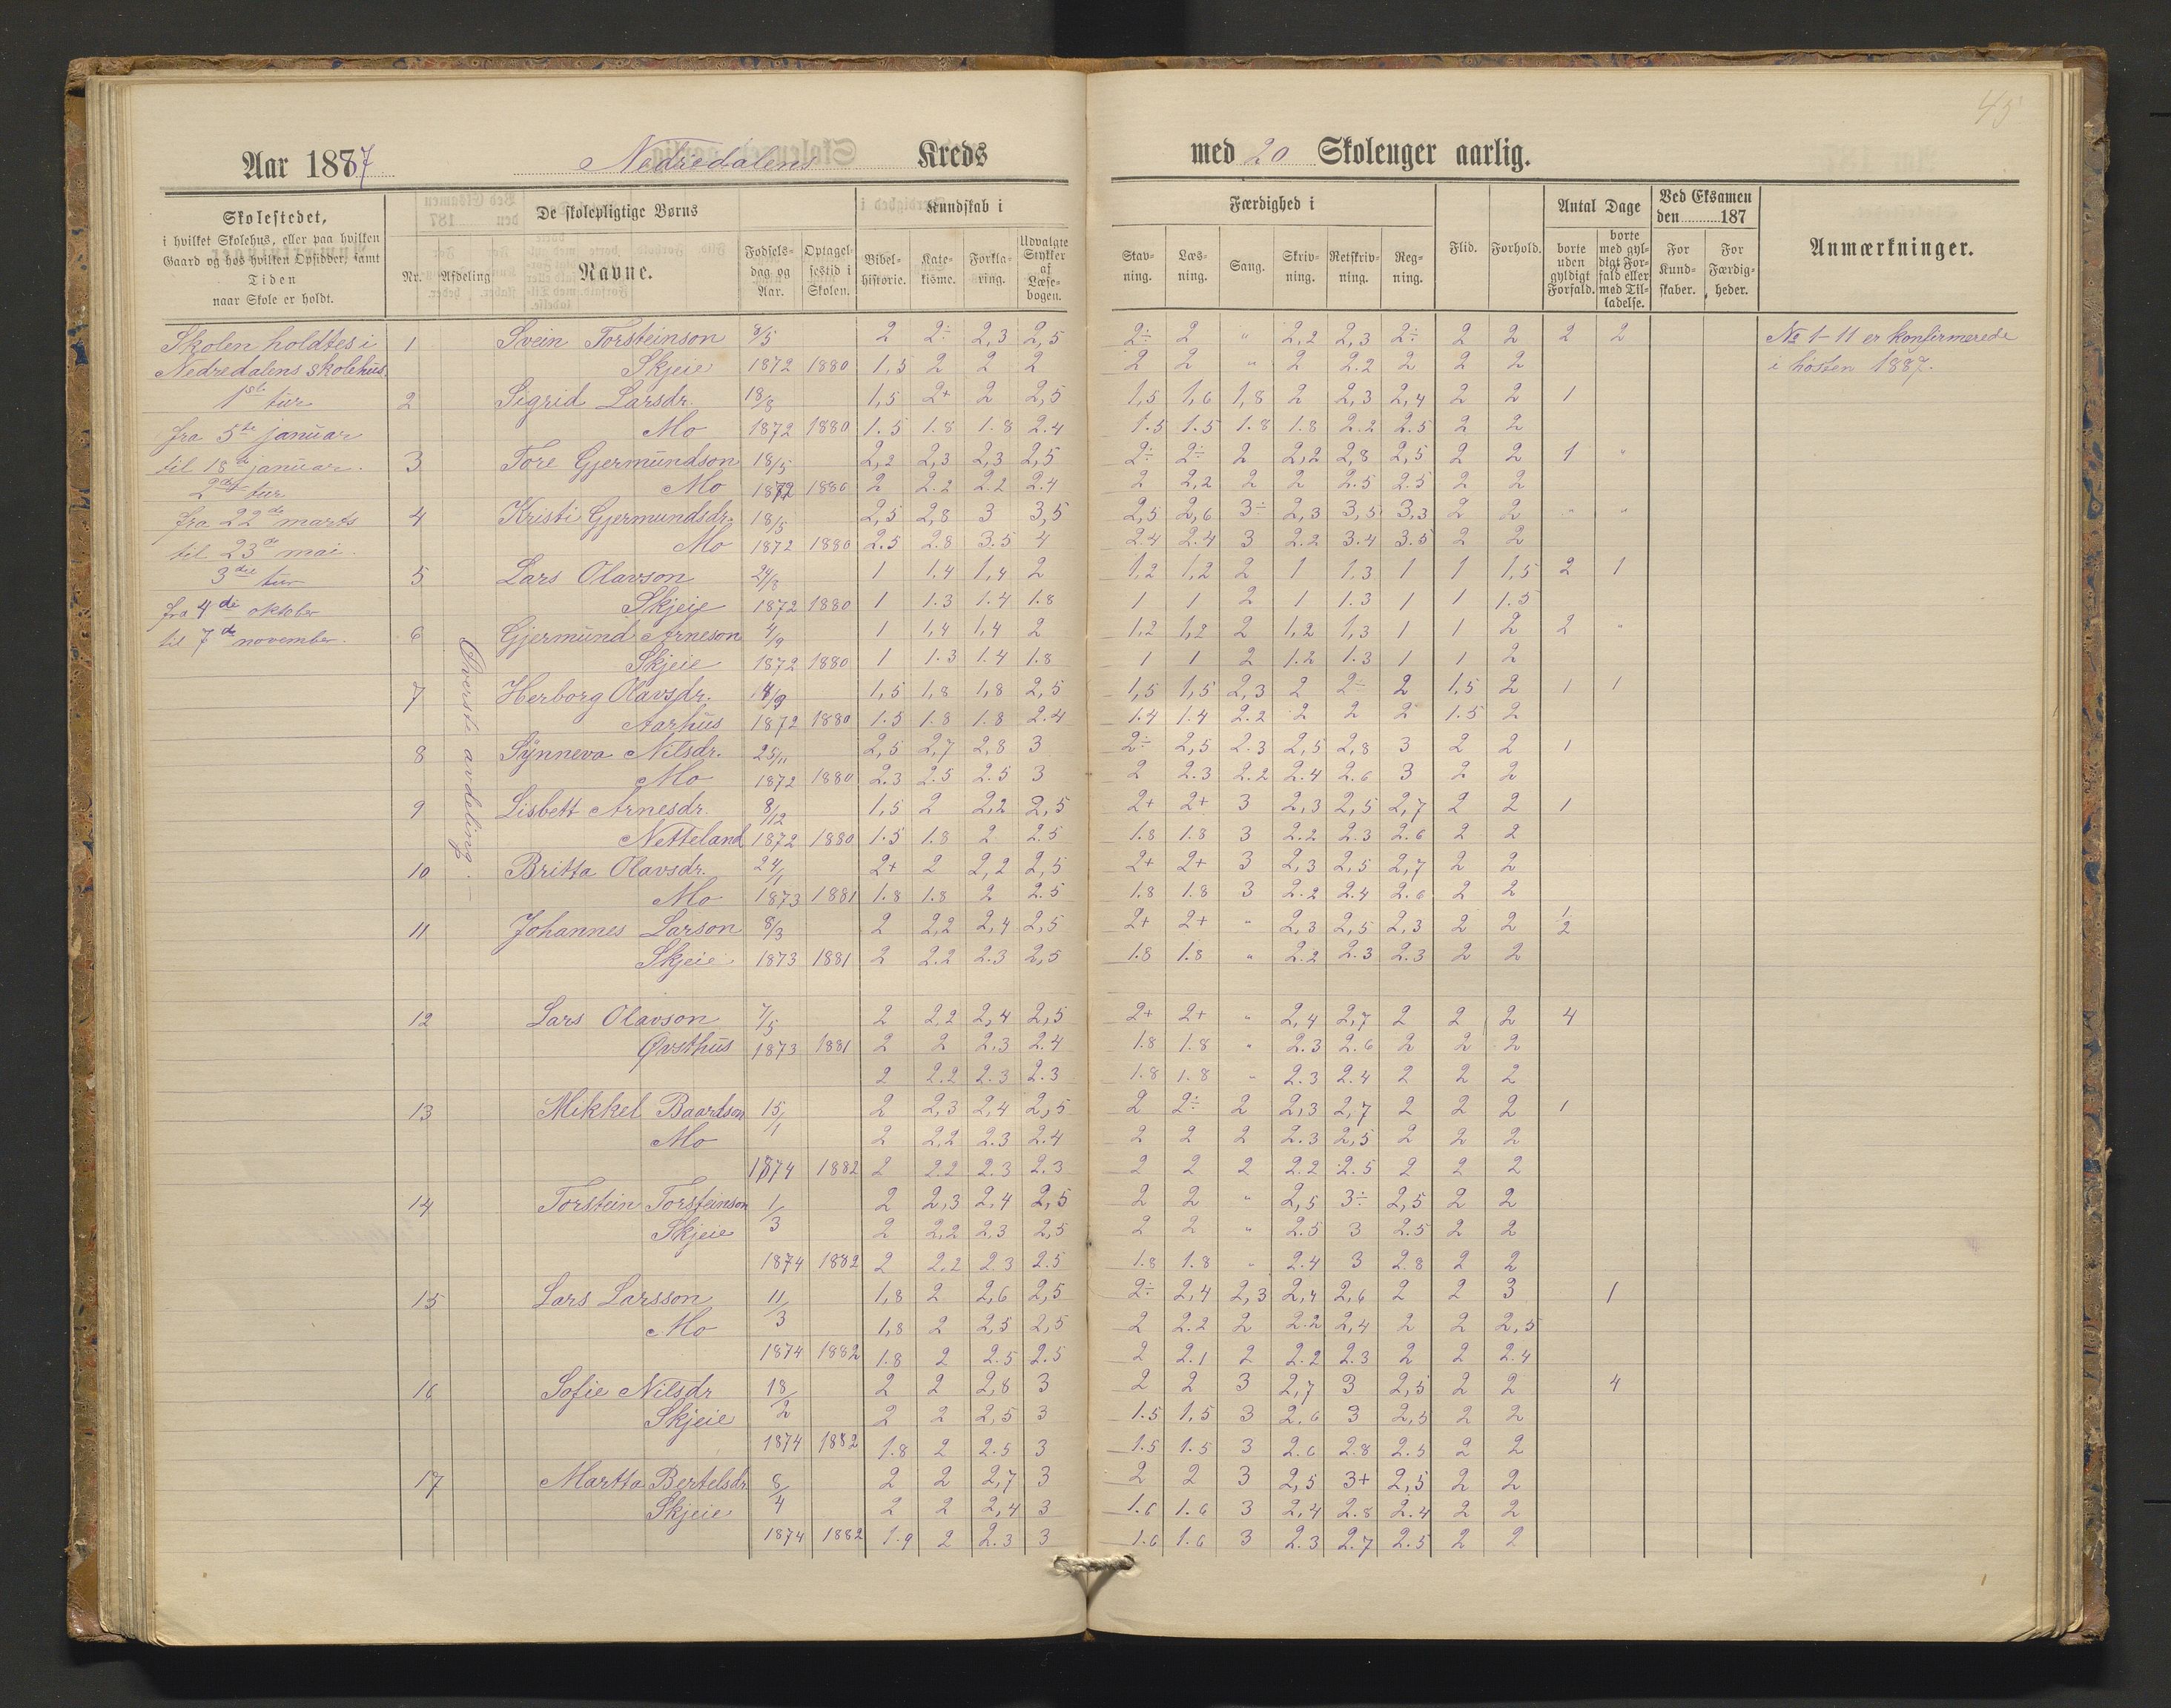 45
Aar 1887 Nedredalens Kreds med 20 Skoleuger aarlig.
Skolestedet,
i hvilket Skolehus, eller paa hvilken
Gaard og hos hvilken Opsidder, samt
Tiden
naar Skole er holdt.
De skolepligtige Børns
Nr. Afdeling Navne. Fødselsdag og Aar. Optagelsestid i Skolen.
Kundskab i
Bibelhistorie. Katekisme. Forklaring. Udvalgte Stykker af Læsebogen.
Færdighed i
Stavning. Læsning. Sang. Skrivning. Retskrivning. Regning.
Flid. Forhold.
Antal Dage
borte uden gyldigt Forfald. borte med gyldigt Forfald eller med Tilladelse.
Ved Eksamen den 187
For Kundskaber. For Færdigheder.
Anmærkninger.
Skolen holdtes i
Nedredalens skolehus.
1ste tur
fra 5te januar
til 18de januar.
2den tur
fra 22de marts
til 23de mai.
3die tur
fra 4de oktober
til 7de november.
Øverste avdeling.
1 Svein Torsteinson 8/5 2 2÷ 2,3 2,5 2÷ 2 " 2,2 2,3 2÷ 2 2 2 2 No 1-11 er konfirmerede
Skjeie 1872 1880 1,5 2 2 2 2 2 " 2 2.2 2 2 2 i hösten 1887.
2 Sigrid Larsdr. 18/8 1,5 2+ 2 2,5 1,5 1,6 1,8 2 2,3 2,4 2 2 1
Mo 1872 1880 1.5 1.8 1.8 2.4 1.5 1.5 1.8 1.8 2.2 2.5 2 2
3 Tore Gjermundson 18/5 2,2 2,3 2,3 2,5 2÷ 2÷ 2 2,2 2,8 2,5 2 2 1 "
Mo 1872 1880 2 2.2 2.2 2.4 2 2,2 2 2 2.5 2.5 2 2
4 Kristi Gjermundsdr. 18/5 2,5 2,8 3 3,5 2,5 2,6 3÷ 2,3 3,5 3,3 2 2 " "
Mo 1872 1880 2.5 2.8 3.5 4 2.4 2.4 3 2.2 3.4 3.5 2 2
5 Lars Olavson 24/8 1 1,4 1,4 2 1,2 1,2 2 1 1.3 1 1 1,5 2 1
Skjeie 1872 1880 1 1.3 1.4 1.8 1 1 2 1 1.3 1 1 1.5
6 Gjermund Arneson 4/9 1 1,4 1,4 2 1,2 1,2 2 1,2 1,3 1 1 2 2 "
Skjeie 1872 1880 1 1.3 1.4 1.8 1 1 2 1.2 1.3 1 1 2
7 Herborg Olavsdr. 18/9 1,5 1,8 1,8 2,5 1,5 1,5 2,3 2 2÷ 2 1,5 2 1 1
Aarhus 1872 1880 1.5 1.8 1.8 2.4 1.4 1.4 2.2 2 2 2 1.5 2
8 Synneva Nilsdr. 25/11 2,5 2,7 2,8 3 2÷ 2,5 2.3 2,5 2,8 3 2 2 1
Mo 1872 1880 2.3 2.5 2.5 3 2 2.3 2.2 2.4 2.6 3 2 2
9 Lisbett Arnesdr. 8/12 1,5 2 2,2 2,5 2+ 2+ 3 2,3 2,5 2,7 2 2 1
Netteland 1872 1880 1.5 1.8 2 2.5 1.8 1.8 3 2.2 2.3 2.6 2 2
10 Britta Olavsdr. 24/1 2+ 2 2,2 2,5 2+ 2+ 3 2,3 2,5 2,7 2 2
Mo 1873 1881 1.8 1.8 2 2.5 1.8 1.8 3 2.2 2.4 2.6 2 2
11 Johannes Larson 8/3 2 2,2 2,4 2,5 2+ 2+ " 2,3 2,5 2,3 2 2 1/2
Skjeie 1873 1881 2 2.2 2.3 2,5 1.8 1.8 " 2.2 2.3 2.3 2 2
12 Lars Olavson 7/5 2 2,2 2,4 2,5 2+ 2+ " 2,4 2,7 2 2 2 4
Øvsthus 1873 1881 2 2 2.3 2.4 1.8 1.8 " 2.3 2.6 2 2 2
2 2.2 2.3 2.3 1.8 1.8 " 2.3 2.4 2 2 2
13 Mikkel Baardson 15/1 2 2,3 2,4 2,5 2 2÷ 2 2,3 2,7 2 2 2 1
Mo 2 2,2 2.3 2.4 2 2 2 2.3 2,5 2 2 2
1874 1882 2 2.2 2.3 2.3 2 2 2 2.2 2.5 2 2 2
14 Torstein Torsteinson 1/3 2 2,3 2,4 2,5 2 2 " 2,5 3÷ 2,5 2 2
Skjeie 2 2,2 2,3 2,5 2 2 " 2.5 3 2.5 2 2
1874 1882 2 2.2 2.3 2.5 1.8 1.8 " 2.4 3 2.8 2 2
15 Lars Larsson 11/3 1,8 2 2,6 2,5 2÷ 2,4 2,3 2,4 2,6 2 2 3 1
Mo 1,8 2 2,5 2,5 2 2.2 2 2.2 2,4 2 2 2,5
1874 1882 1.8 2 2.5 2.5 2 2.1 2 2.2 2.3 2 2 2.4
16 Sofie Nilsdr 18/2 2 2 2,8 3 2 2 3 2,7 3 2,5 2 2 4
Skjeie 2 2 2,5 3 1.5 1,5 3 2.6 3 2,5 2 2
1874 1882 1.8 2 2.5 3 1.5 1.5 3 2.6 2.8 2.5 2 2
17 Martta Bertelsdr 8/4 2 2 2,7 3 2 2 3 2,5 3+ 2,5 2 2
Skjeie 2 2 2,4 3 1.6 1.6 3 2,4 2.8 2.4 2 2
1874 1882 1.9 2 2.3 3 1.6 1.6 3 2.3 2.7 2.5 2 2